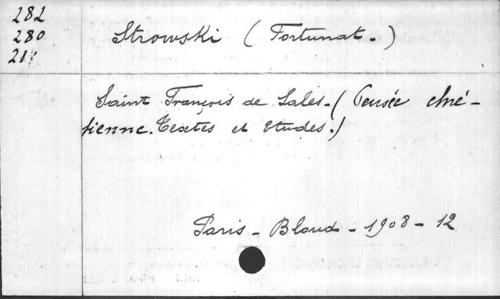 282
280
21
Strowski ( Fortunat. )
Saint François de Sales. ( Pensée chré-
tienne. Textes et Etudes. )
Paris - Bloud - 1908 - 12